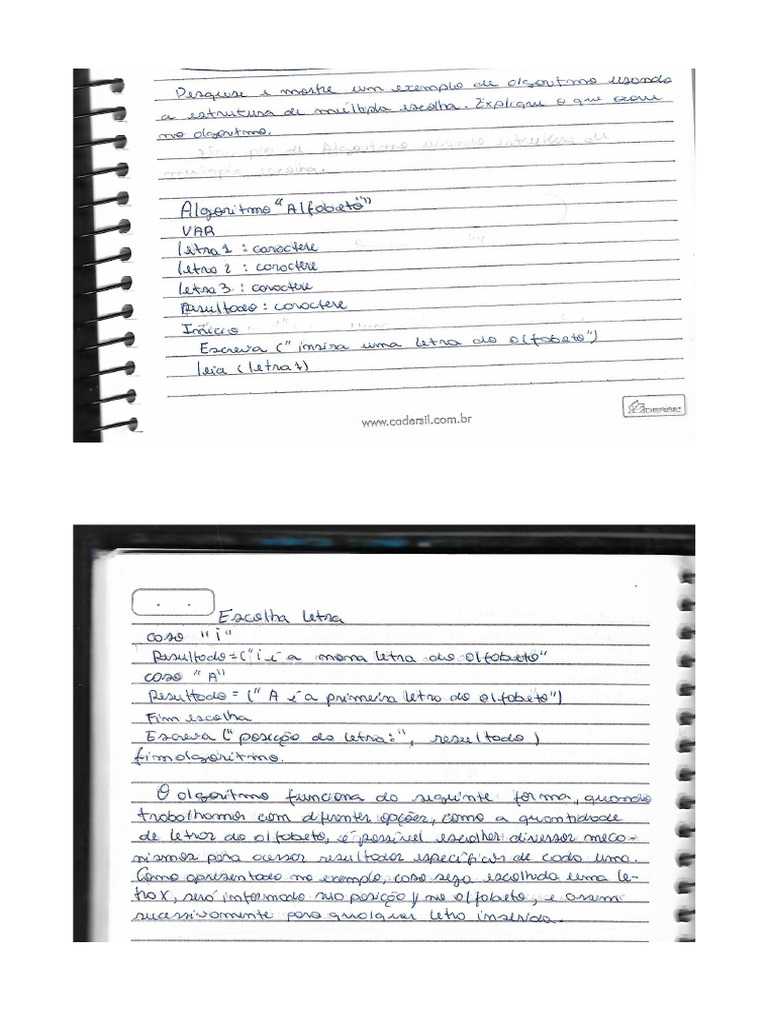 Pesquise e mostre um exemplo de algoritmo usando
a estrutura de múltipla escolha. Explique o que ocorre
no algoritmo.
Exemplo de Algoritmo usando estrutura de
multipla escolha.
Algoritmo "Alfabeto"
VAR
letra 1 : caractere
letra 2 : caractere
letra 3 : caractere
Resultado : caractere
Início
Escreva ("insira uma letra do alfabeto")
leia (letra 1)
CADERSIL
www.cadersil.com.br
Escolha letra
caso "i"
Resultado = ("i é a nona letra do alfabeto"
caso "A"
Resultado = ("A é a primeira letra do alfabeto")
Fim escolha
Escreva ("posição da letra:", resultado)
fimalgoritmo.
O algoritmo funciona da seguinte forma, quando
trabalhamos com diferentes opções, como a quantidade
de letras do alfabeto, é possível escolher diversos meca-
nismos para acessar resultados específicos de cada uma.
Como apresentado no exemplo, caso seja escolhida uma le-
tra x, será informado sua posição y no alfabeto, e assim
sucessivamente para qualquer letra inserida.